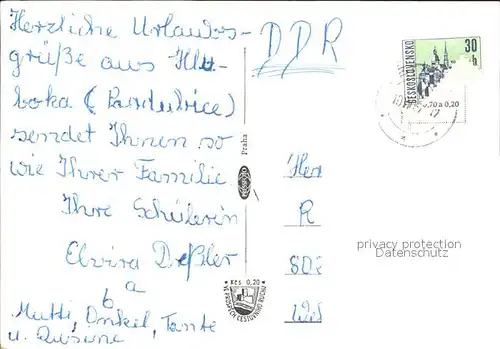 Herzliche Urlaubs-
grüße aus Hlu-
boka (Pardubice)
sendet Ihnen so
wie Ihrer Familie
Ihre Schülerin
Elvira Deßler
a
b
Mutti, Onkel, Tante
u. Cousine
DDR
ČESKOSLOVENSKO
30
h
0,70 a 0,20
Praha
Herr
R
Kčs 0,20
VE PROSPĚCH CESTOVNÍHO RUCHU
privacy protection
Datenschutz